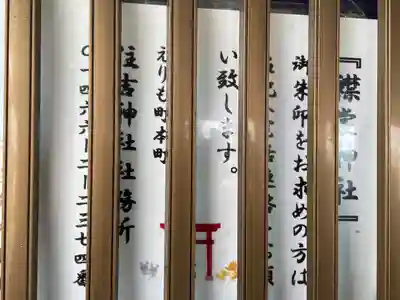 『襟裳神社』
御朱印をお求めの方は
い致します。
えりも町本町
住吉神社社務所
〇一四六六ー二ー二三七四番